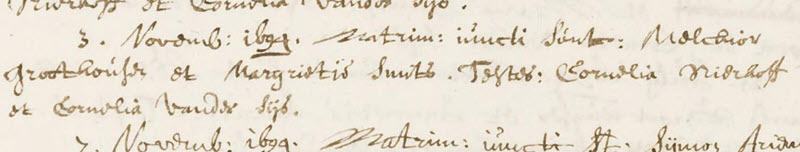 Nierhoff et Cornelia vander sijs.
3. Novemb: 1694. Matrim: iuncti sunt: Melchior
Groothouser et Margrietis Smits. Testes: Cornelia Nierhoff
et Cornelia vander sijs.
7. Novemb: 1694. Matrim: iuncti st. Sijmon